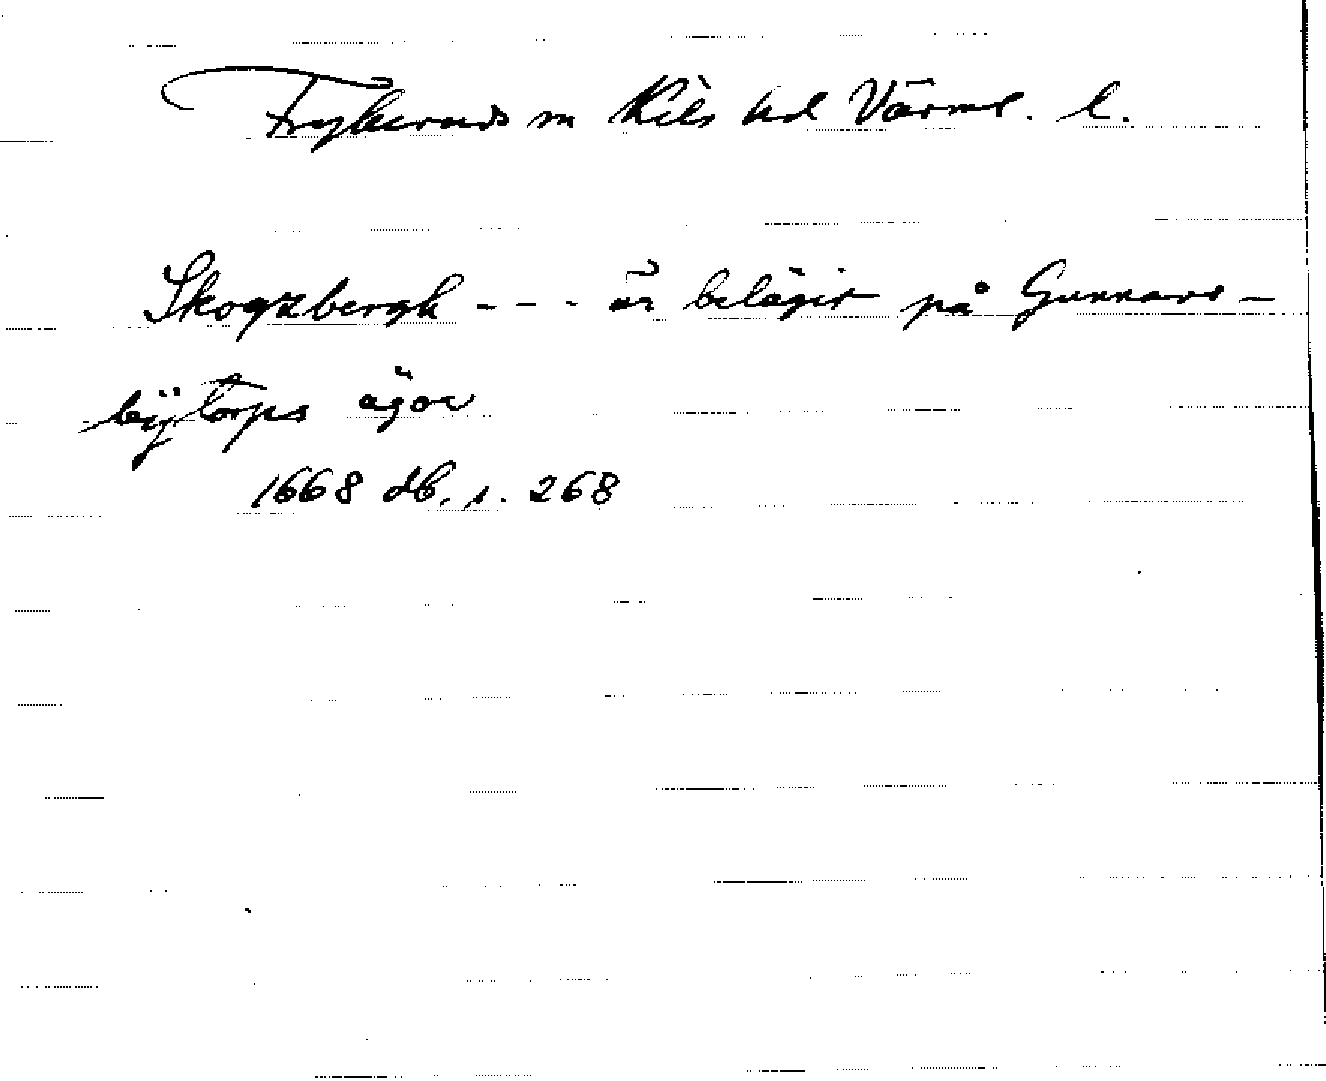 Frykeruds sn Kils hd Värml. l.
Skogzbergh - - - är belägit på Gunnars-
bÿtorps ägor
1668 db. s. 268